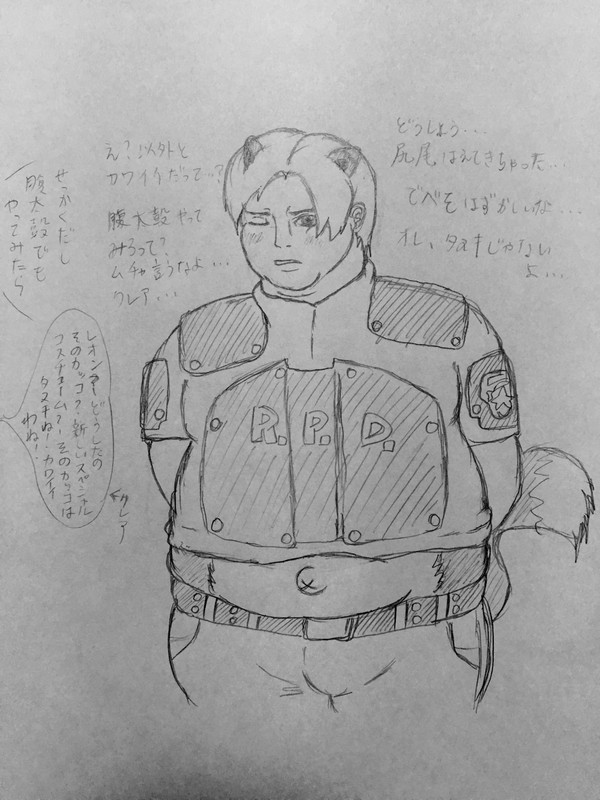 どうしよう・・・
尻尾はえてきちゃった・・・
でべそはずかしいな・・・
オレ、タヌキじゃない
よ・・・
え?以外と
カワイイだって・・?
腹太鼓やって
みろって?
ムチャ言うなよ・・・
クレア・・・
せっかくだし
腹太鼓でも
やってみたら
レオンどうしたの
そのカッコ?新しいスペシャル
コスチューム?そのカッコは
タヌキね!カワイイ
わね!
クレア
R.P.D.